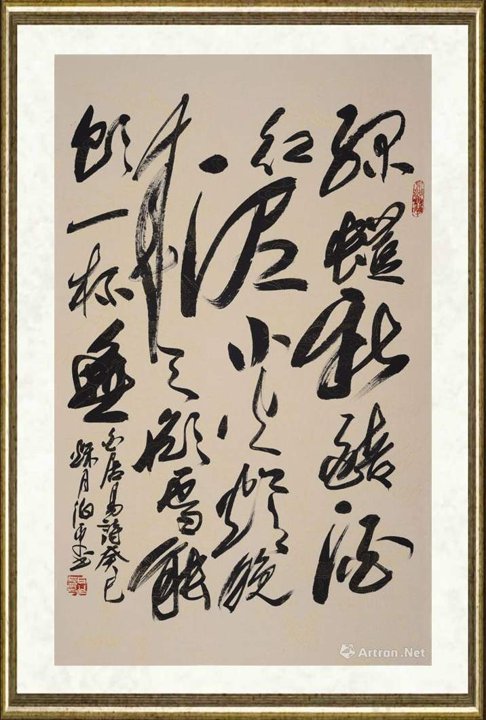 绿螘新醅酒
红泥小火炉晚
来天欲雪能
飲一杯無
白居易詩癸巳
月
Artron.Net